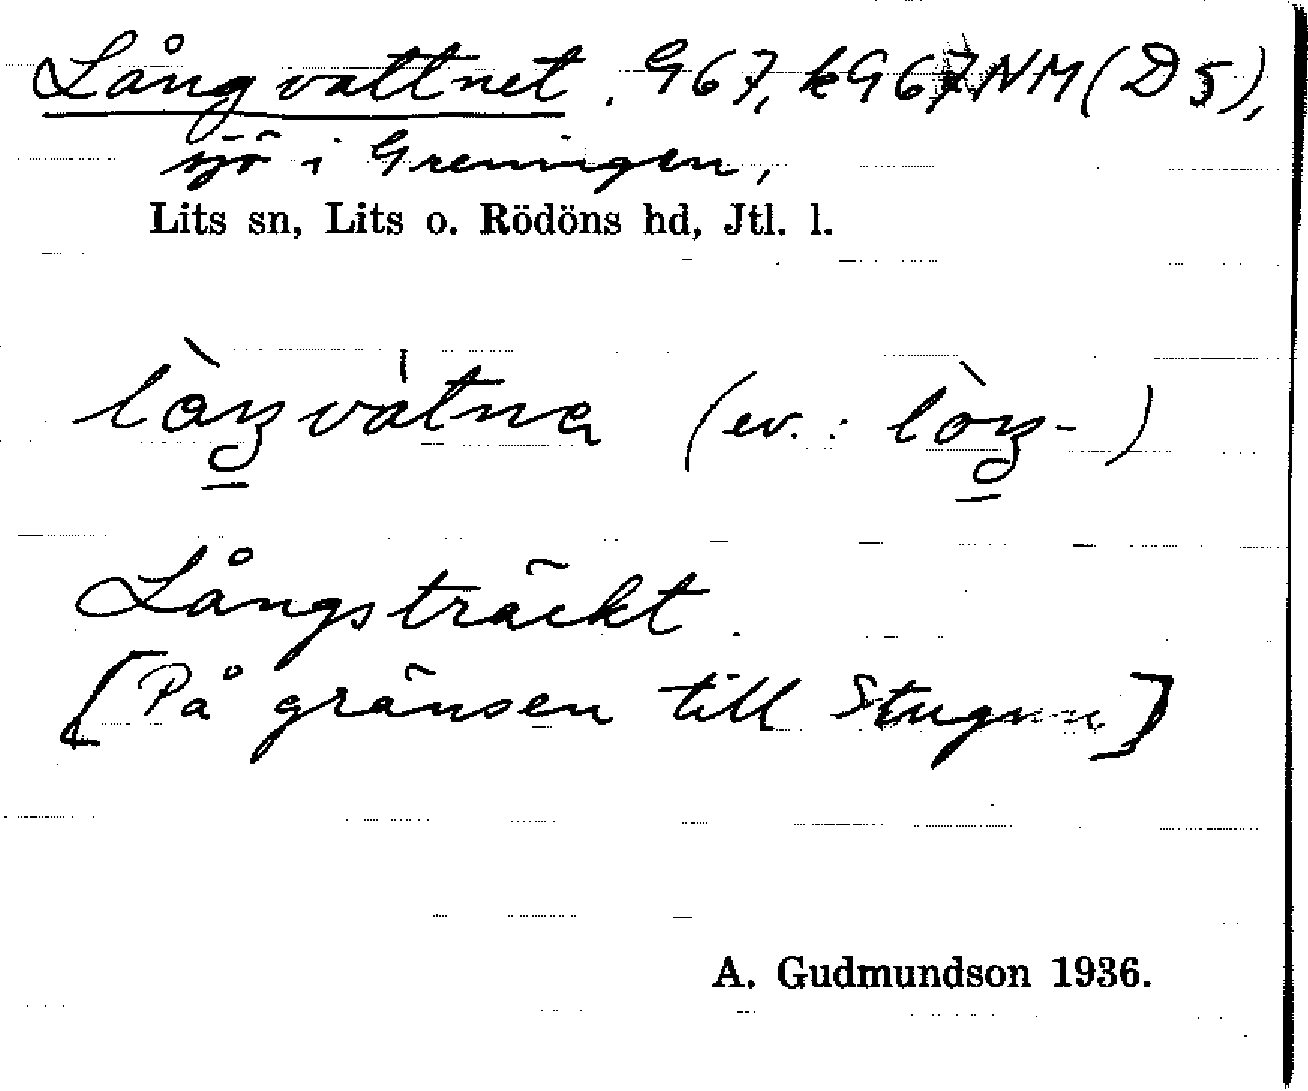 Långvattnet. G67, kG67NM (D5),
sjö i Greningen,
Lits sn, Lits o. Rödöns hd, Jtl. l.
(ev.:
Långsträckt.
[På gränsen till Stugun]
A. Gudmundson 1936.